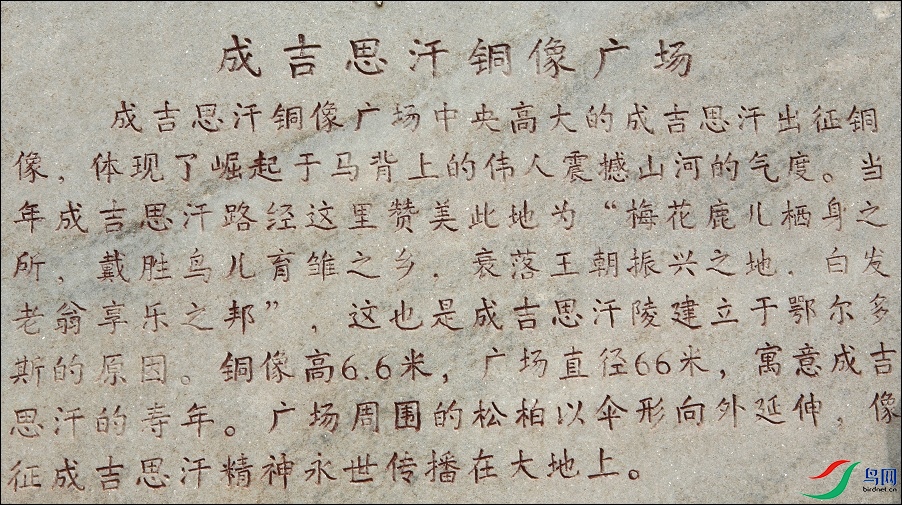 成吉思汗铜像广场
成吉思汗铜像广场中央高大的成吉思汗出征铜
像，体现了崛起于马背上的伟人震撼山河的气度。当
年成吉思汗路经这里赞美此地为“梅花鹿儿栖身之
所，戴胜鸟儿育雏之乡，衰落王朝振兴之地，白发
老翁享乐之邦”，这也是成吉思汗陵建立于鄂尔多
斯的原因。铜像高6.6米，广场直径66米，寓意成吉
思汗的寿年。广场周围的松柏以伞形向外延伸，像
征成吉思汗精神永世传播在大地上。
鸟网
birdnet.cn